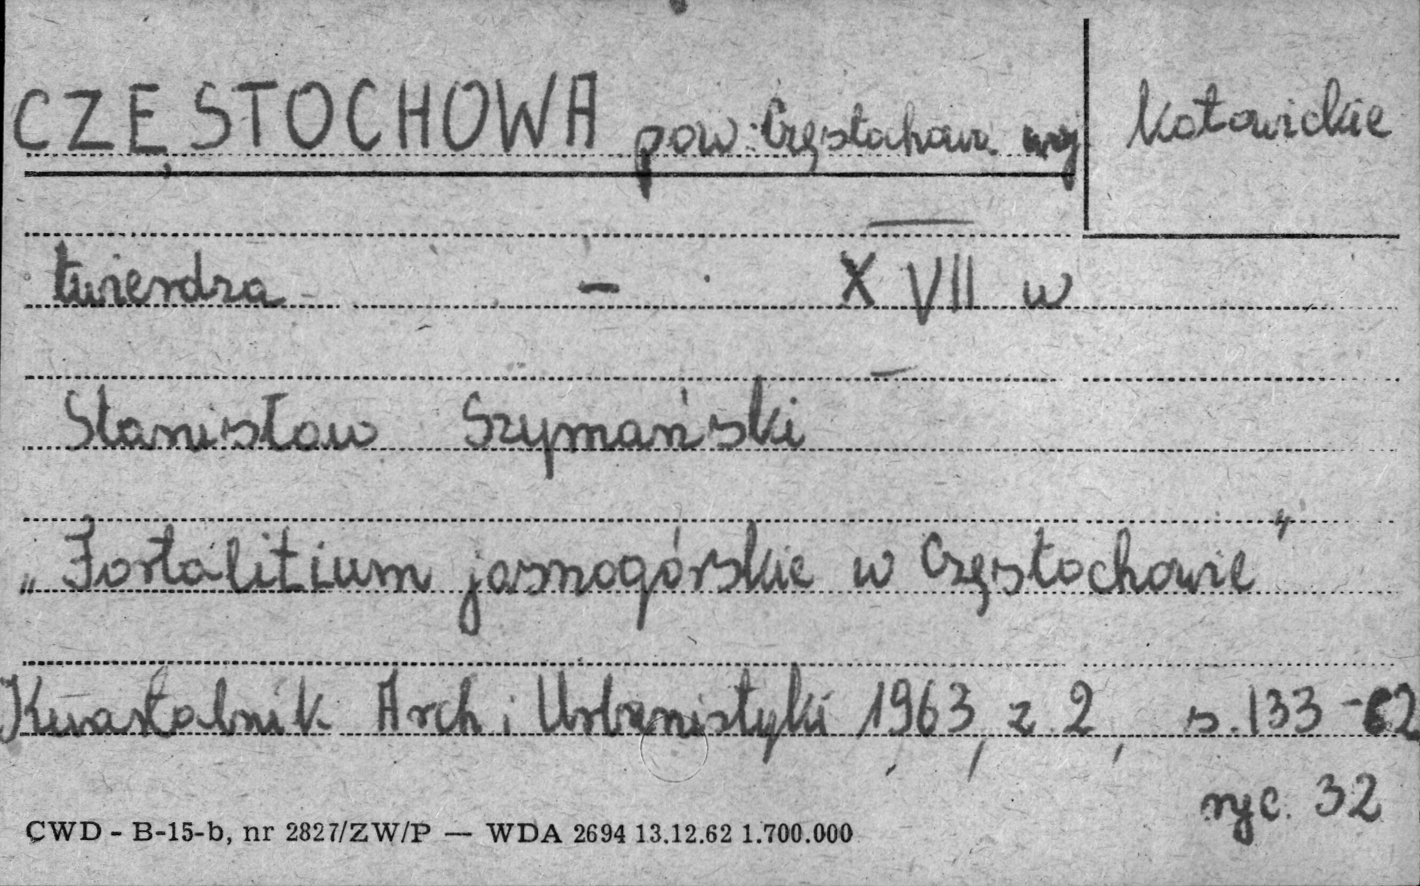 CZĘSTOCHOWA pow. Częstochowa woj Katowickie
twierdza - XVII w
Stanisław Szymański
„Fortalitium jasnogórskie w Częstochowie"
Kwartalnik Arch i Urbanistyki 1963, z. 2, s. 133 - 62
ryc. 32
CWD - B-15-b, nr 2827/ZW/P — WDA 2694 13.12.62 1.700.000